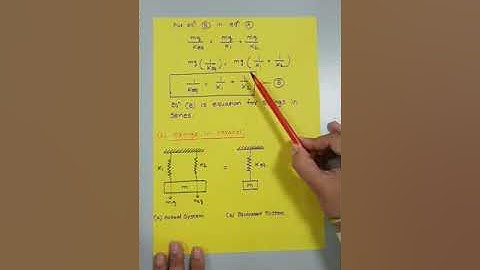 Put eqⁿ (B) in eqⁿ (A)
mg/Keq = mg/K1 + mg/K2
mg (1/Keq) = mg (1/K1 + 1/K2)
1/Keq = 1/K1 + 1/K2 — (B)
Eqⁿ (B) is equation for springs in
series.
Springs in parallel
K1 K2 = Keq
m m
mg mg
(a) Actual System (b) Equivalent System